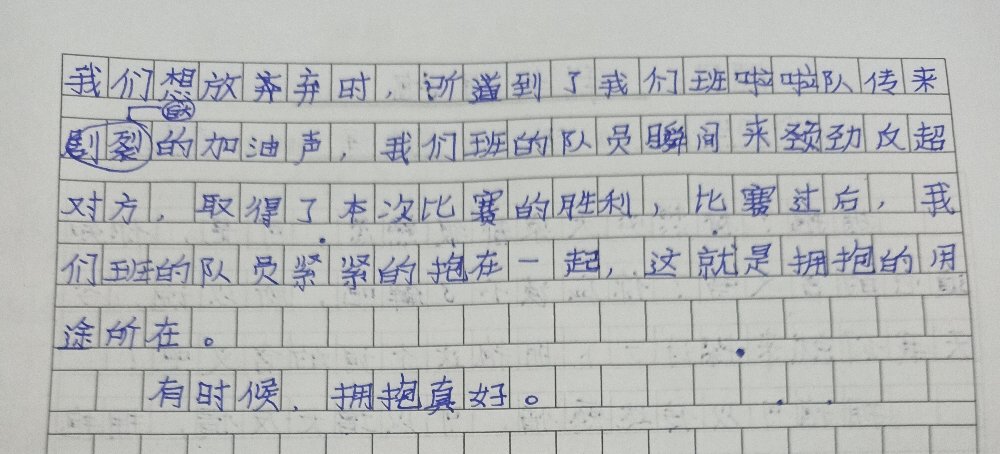 我们想放弃弃时，听道到了我们班啦啦队传来
剧裂的加油声，我们班的队员瞬间来颈劲反超
对方，取得了本次比赛的胜利，比赛过后，我
们班的队员紧紧的抱在一起，这就是拥抱的用
途所在。
有时候，拥抱真好。